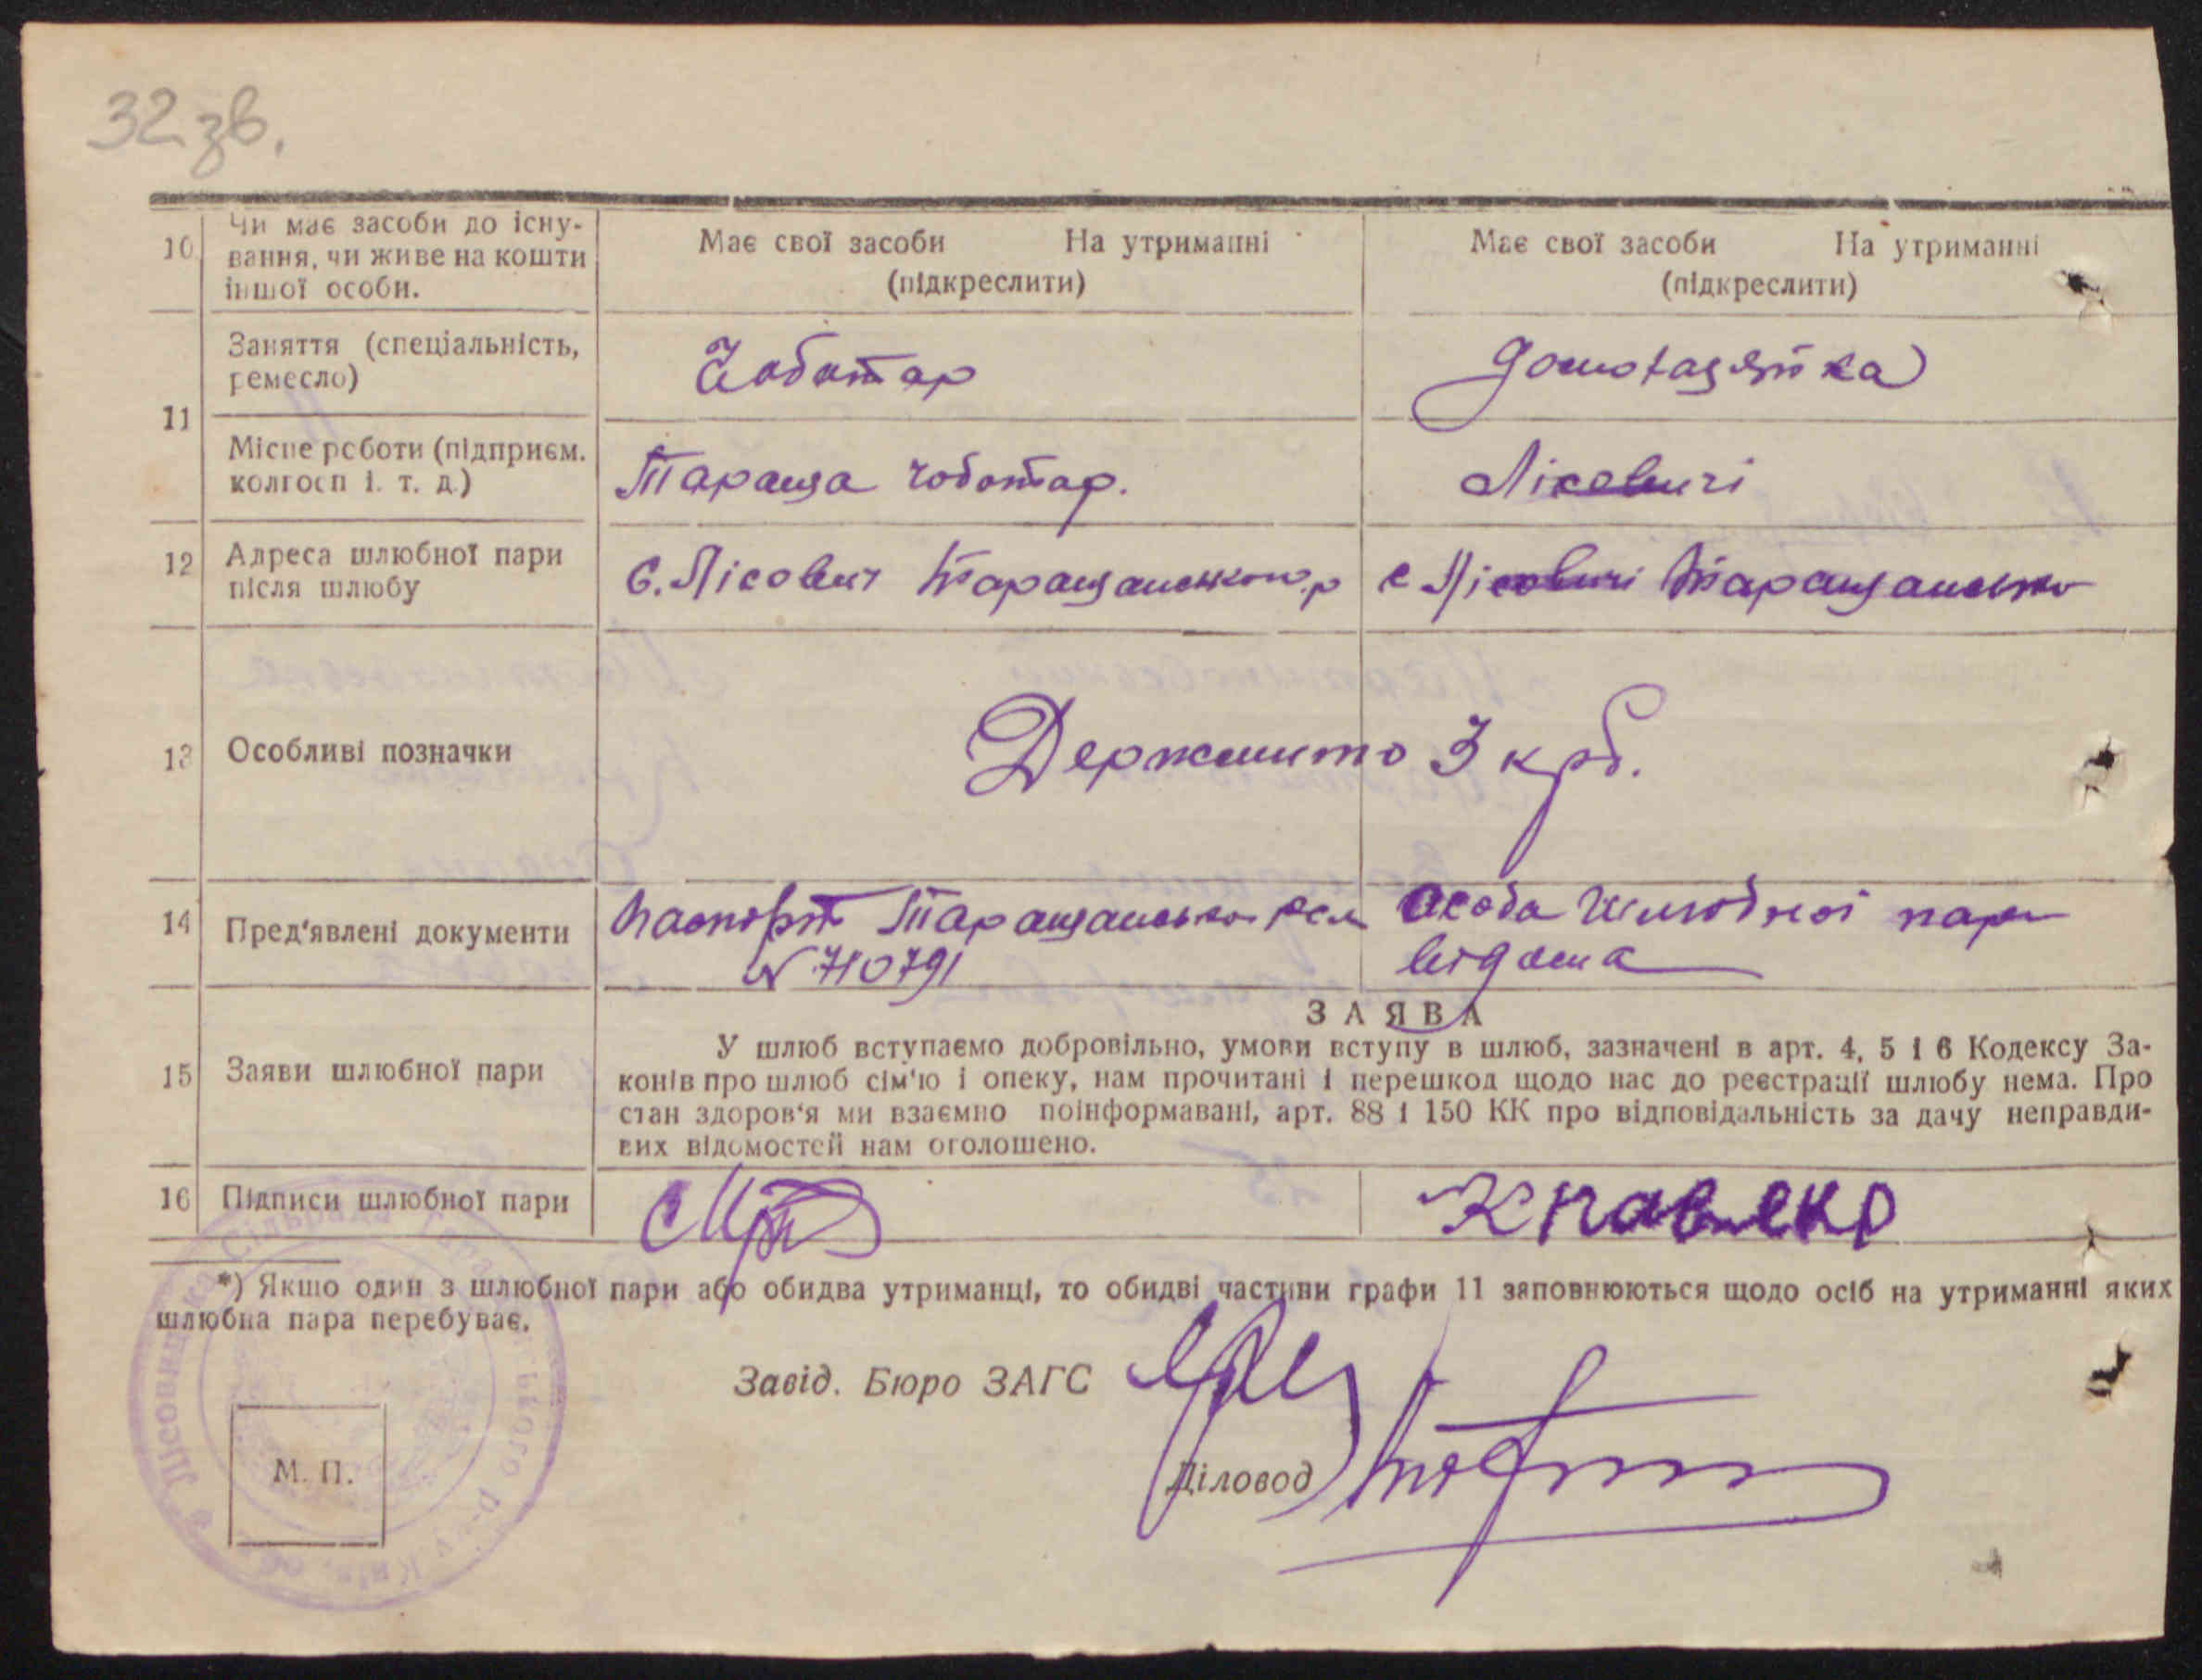 32 зв.
10 Чи має засоби до існу-
вання, чи живе на кошти
іншої особи.
Має свої засоби На утриманні
(підкреслити)
Має свої засоби На утриманні
(підкреслити)
11
Заняття (спеціальність,
ремесло)
Чоботар
Домохазяйка
Місце роботи (підприєм.
колгосп і. т. д.)
Тараща чоботар.
Лісовичі
12 Адреса шлюбної пари
після шлюбу
С. Лісович Таращанського р
с Лісовичі Таращансько
13 Особливі позначки
Держмито 3 крб.
14 Пред'явлені документи
Паспорт Таращансько
N 710791
Особа шлюбної пари
відома
15 Заяви шлюбної пари
ЗАЯВА
У шлюб вступаємо добровільно, умови вступу в шлюб, зазначені в арт. 4, 5 і 6 Кодексу За-
конів про шлюб сім'ю і опеку, нам прочитані і перешкод щодо нас до реєстрації шлюбу нема. Про
стан здоров'я ми взаємно поінформавані, арт. 88 і 150 КК про відповідальність за дачу неправди-
вих відомостей нам оголошено.
16 Підписи шлюбної пари
*) Якшо один з шлюбної пари або обидва утриманці, то обидві частини графи 11 заповнюються щодо осіб на утриманні яких
шлюбна пара перебуває.
Завід. Бюро ЗАГС
Діловод
М. П.